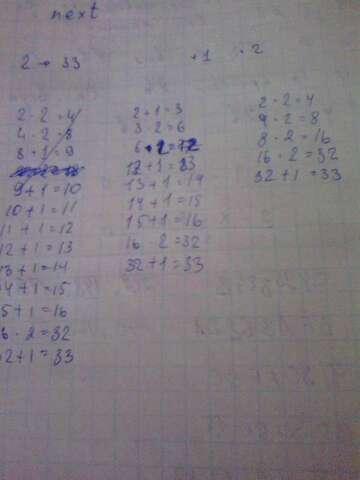 next
2 → 33
+1
· 2
2 · 2 = 4
4 · 2 = 8
8 + 1 = 9
9 + 1 = 10
10 + 1 = 11
11 + 1 = 12
12 + 1 = 13
3 + 1 = 14
4 + 1 = 15
5 + 1 = 16
6 · 2 = 32
2 + 1 = 33
2 + 1 = 3
3 · 2 = 6
6 · 2 = 12
12 + 1 = 13
13 + 1 = 14
14 + 1 = 15
15 + 1 = 16
16 · 2 = 32
32 + 1 = 33
2 · 2 = 4
4 · 2 = 8
8 · 2 = 16
16 · 2 = 32
32 + 1 = 33